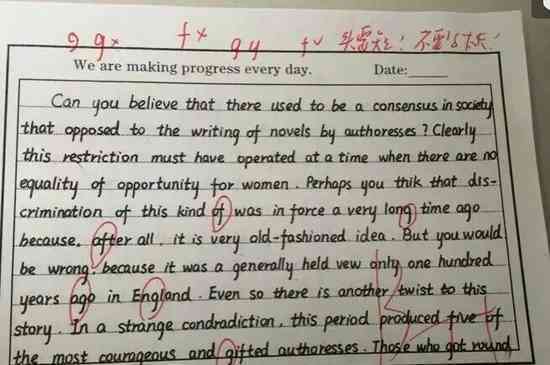 9 gx fx gy fv
We are making progress every day. Date:
Can you believe that there used to be a consensus in society
that opposed to the writing of novels by authoresses ? Clearly
this restriction must have operated at a time when there are no
equality of opportunity for women . Perhaps you thik that dis-
crimination of this kind of was in force a very long time ago
because, after all , it is very old-fashioned idea . But you would
be wrong, because it was a generally held vew only one hundred
years ago in England . Even so there is another twist to this
story . In a strange condradiction , this period produced five of
the most courageous and gifted authoresses . Those who got round